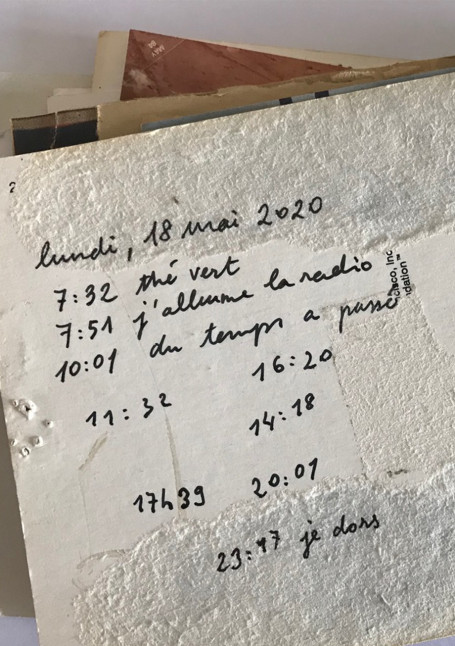 lundi, 18 mai 2020
7:32 thé vert
7:51 j'allume la radio
10:01 du temps a passé
16:20
11:32
14:18
17h39 20:01
23:47 je dors
cisco, Inc
dation™